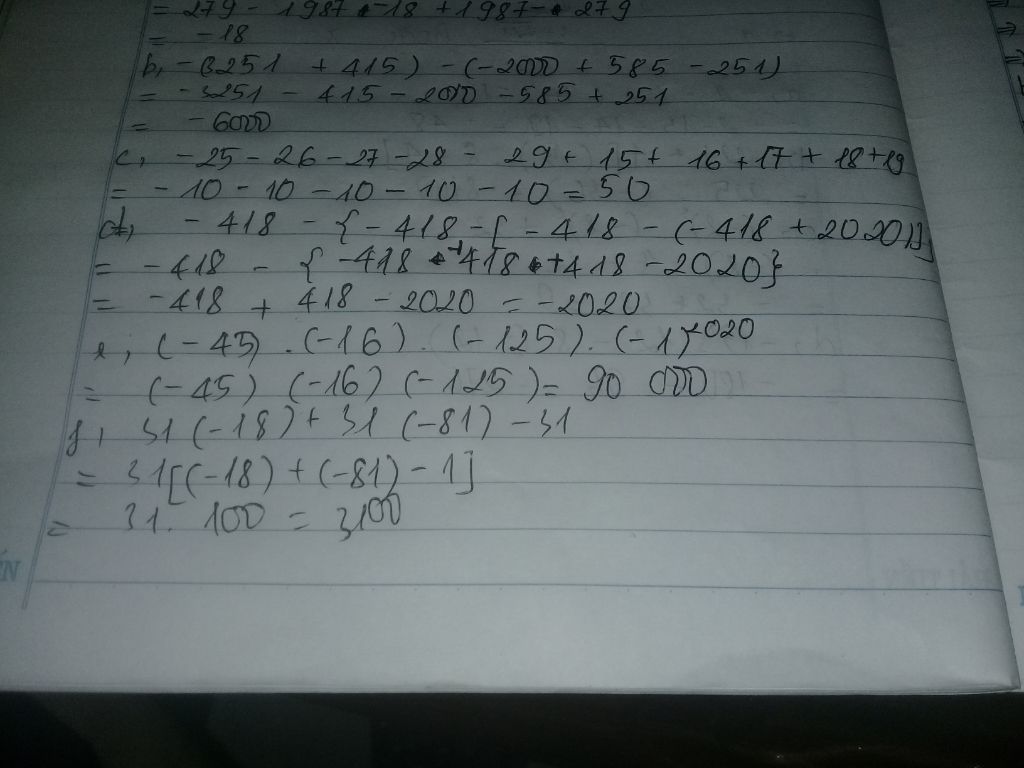 = 279 - 1987 - 18 + 1987 - 279
= -18
b, -(3251 + 415) - (-2000 + 585 - 251)
= -3251 - 415 - 2000 - 585 + 251
= -6000
c, -25 - 26 - 27 - 28 - 29 + 15 + 16 + 17 + 18 + 19
= -10 - 10 - 10 - 10 - 10 = 50
d, -418 - {-418 - [-418 - (-418 + 2020)]}
= -418 - {-418 + 418 + 418 - 2020}
= -418 + 418 - 2020 = -2020
e, (-45) . (-16) . (-125) . (-1)²⁰²⁰
= (-45) (-16) (-125) = 90 000
f, 31 (-18) + 31 (-81) - 31
= 31[(-18) + (-81) - 1]
= 31. 100 = 3100